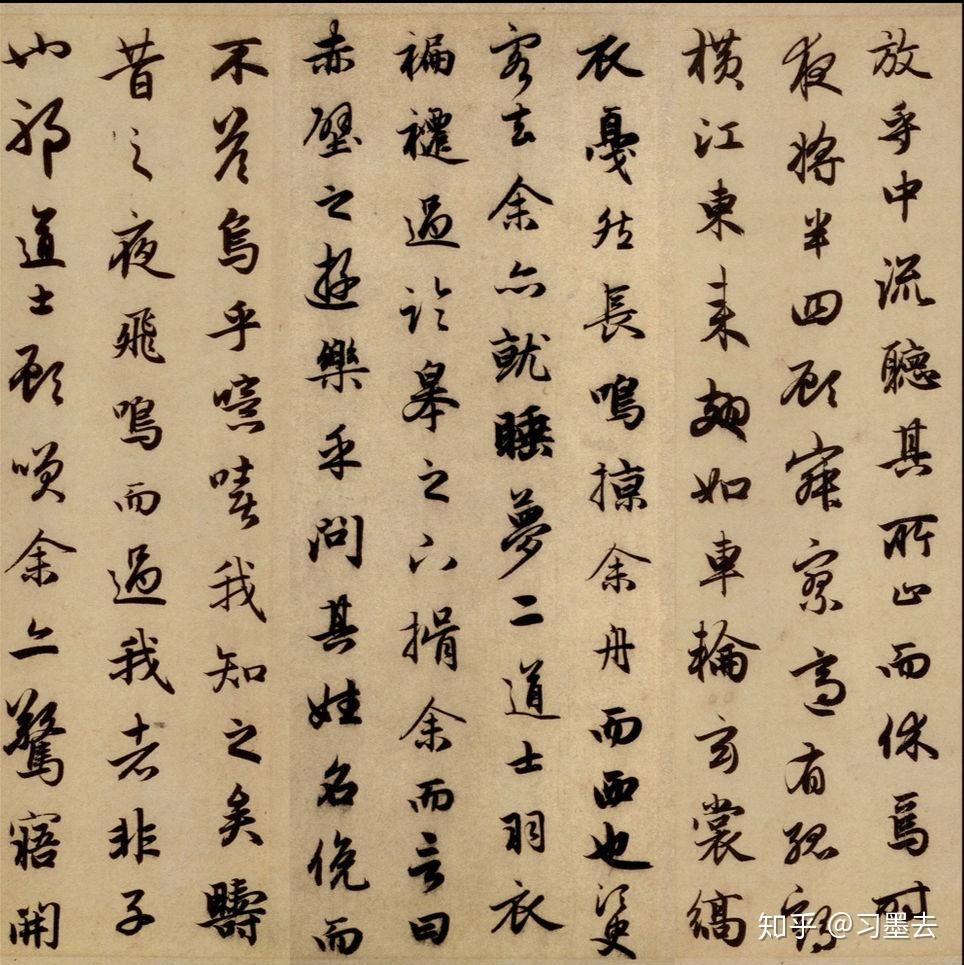 放乎中流聽其所止而休焉時
夜將半四顧寂寥適有孤鶴
橫江東來翅如車輪玄裳縞
衣戛然長鳴掠余舟而西也須臾
客去余亦就睡夢二道士羽衣
褊褼過臨皋之下揖余而言曰
赤壁之遊樂乎問其姓名俛而
不答烏乎噫嘻我知之矣疇
昔之夜飛鳴而過我者非子
也邪道士顧咲余亦驚寤開
知乎 @习墨去